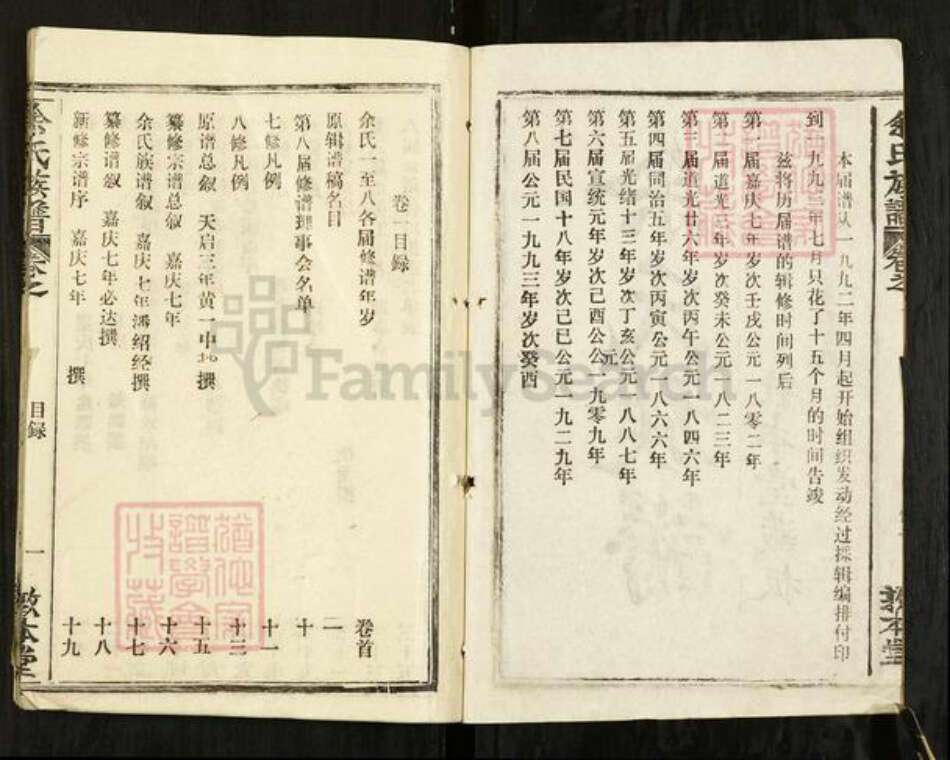 余氏族谱 卷之一
本届谱从一九九二年四月起开始组织发动经过採辑编排付印
到一九九三年七月只花了十五个月的时间告竣
兹将历届谱的辑修时间列后
第一届嘉庆七年岁次壬戌公元一八零二年
第二届道光三年岁次癸未公元一八二三年
第三届道光廿六年岁次丙午公元一八四六年
第四届同治五年岁次丙寅公元一八六六年
第五届光绪十三年岁次丁亥公元一八八七年
第六届宣统元年岁次己酉公元一九零九年
第七届民国十八年岁次己巳公元一九二九年
第八届公元一九九三年岁次癸酉
敦本堂
卷一目录
余氏一至八各届修谱年岁 卷首
原辑谱稿名目 一
第八届修谱理事会名单 十
七修凡例 十一
八修凡例 十三
原谱总叙 天启三年黄一中 撰 十五
纂修宗谱总叙 嘉庆七年 十六
余氏族谱叙 嘉庆七年潘绍经撰 十七
纂修谱叙 嘉庆七年必达撰 十八
新修宗谱序 嘉庆七年 撰 十九
余氏族谱 卷之一
目录 一
敦本堂
FamilySearch